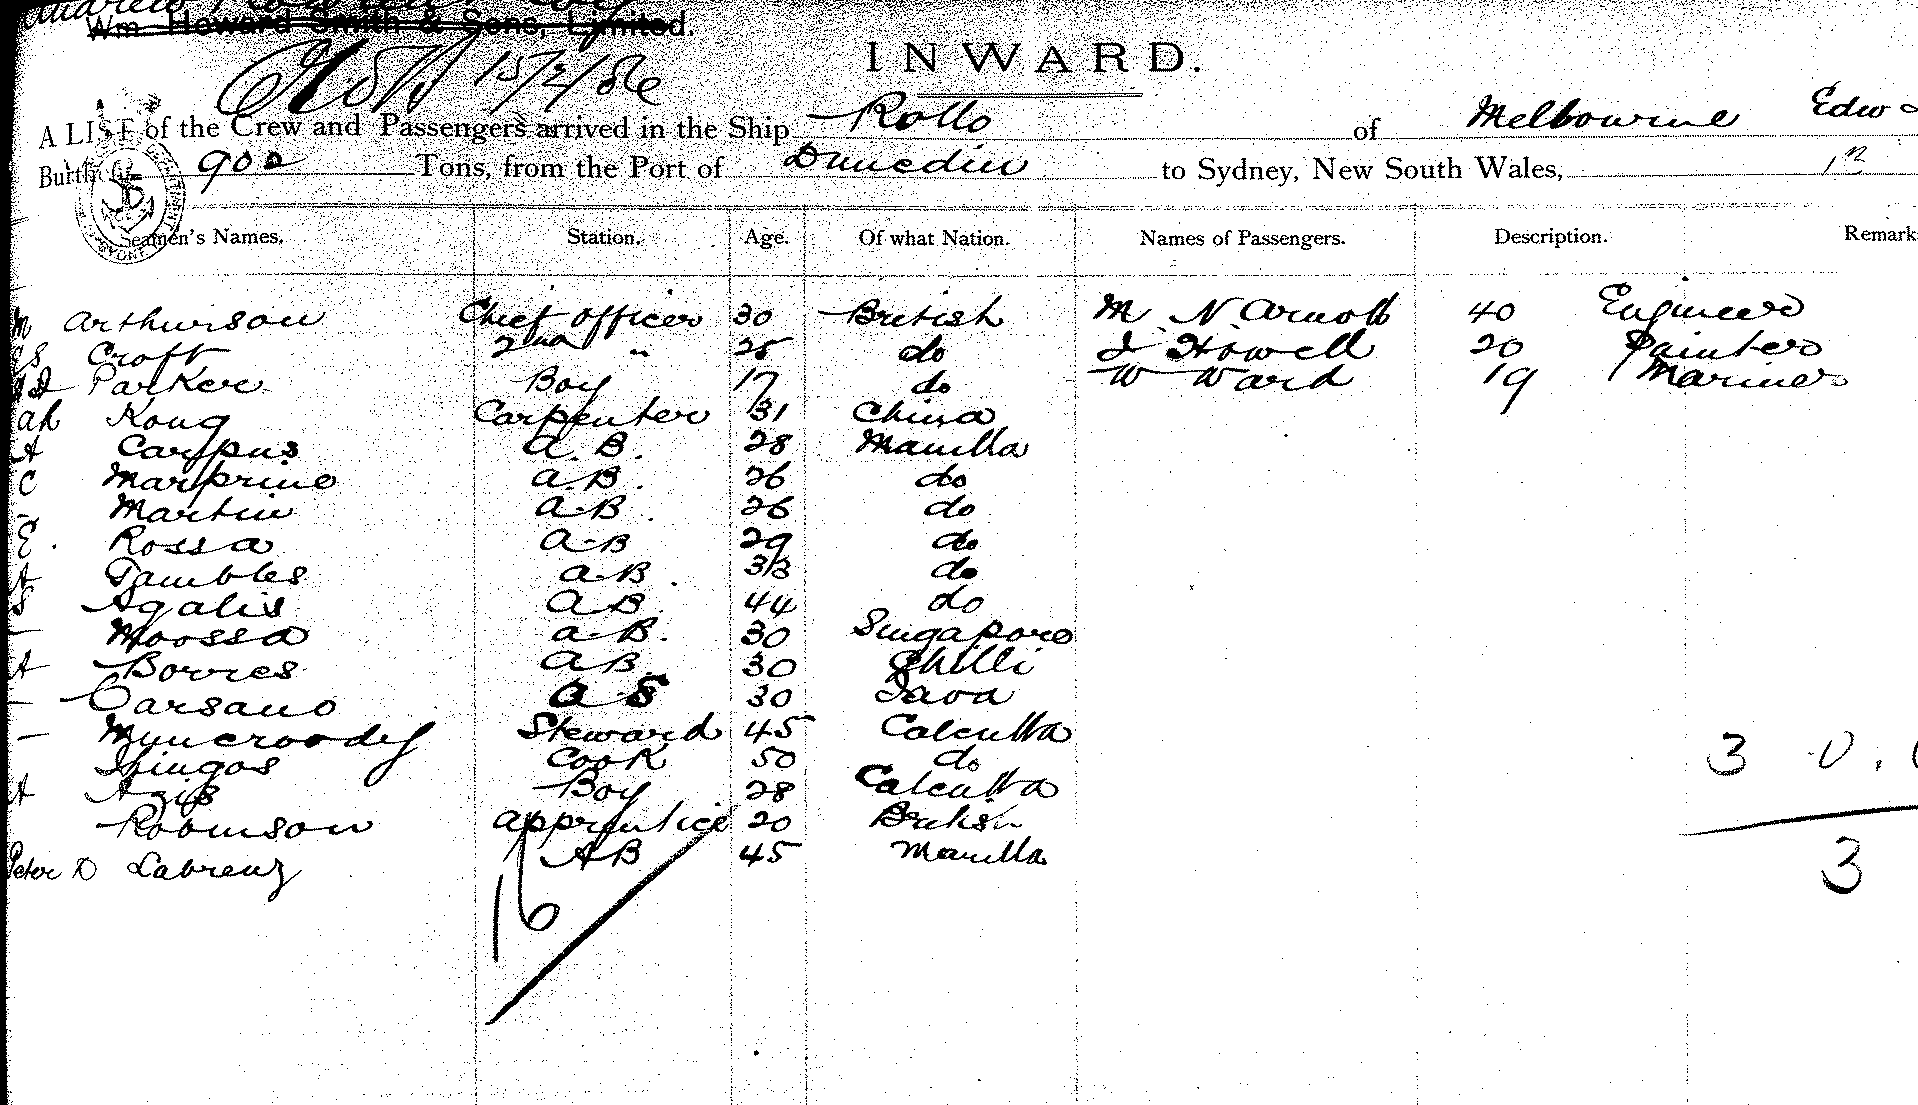 Wm. Howard Smith & Sons, Limited.
15/2/86
INWARD.
A LIST of the Crew and Passengers arrived in the Ship Rollo of Melbourne Edw
Burthen 902 Tons, from the Port of Dunedin to Sydney, New South Wales,
Seamen's Names. Station. Age. Of what Nation. Names of Passengers. Description. Remark
Arthurson Chief Officer 30 British M. N Arnott 40 Engineer
Croft 2nd " 25 do J Howell 20 Painter
Parker Boy 17 do W Ward 19 Mariner
ah Kong Carpenter 31 China
A Carpus A.B. 28 Manilla
C Marprine A.B. 26 do
- Martin A.B. 26 do
E. Rossa A.B 29 do
A Tambles A.B. 33 do
S Agalis A.B. 44 do
- Moossa A.B. 30 Singapore
A Borres A.B. 30 Chilli
- Carsano O S 30 Java
- Muncroodey Steward 45 Calcutta
Cook 50 do
A Azis Boy 28 Calcutta
Robinson Apprentice 20 British
Peter D Labrenz AB 45 Manilla
3 0.
16
3